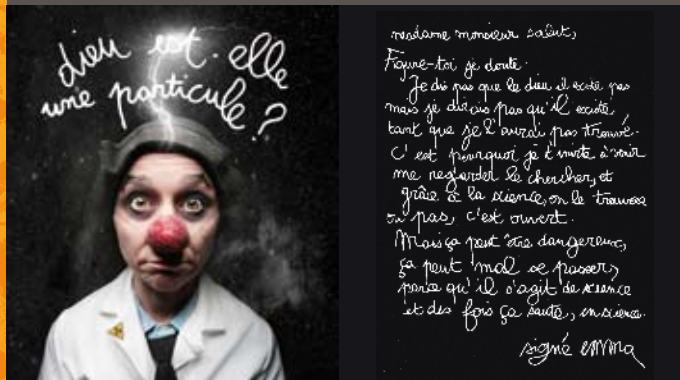 dieu est-elle
une particule ?
madame monsieur salut,
Figure-toi je doute.
Je dis pas que le dieu il existe pas
mais je dirais pas qu'il existe,
tant que je l'aurai pas trouvé.
C'est pourquoi je t'invite à venir
me regarder le chercher, et
grâce à la science, on le trouvera
ou pas, c'est ouvert.
Mais ça peut être dangereux,
ça peut mal se passer,
parce qu'il s'agit de science
et des fois ça saute, en science.
signé emma